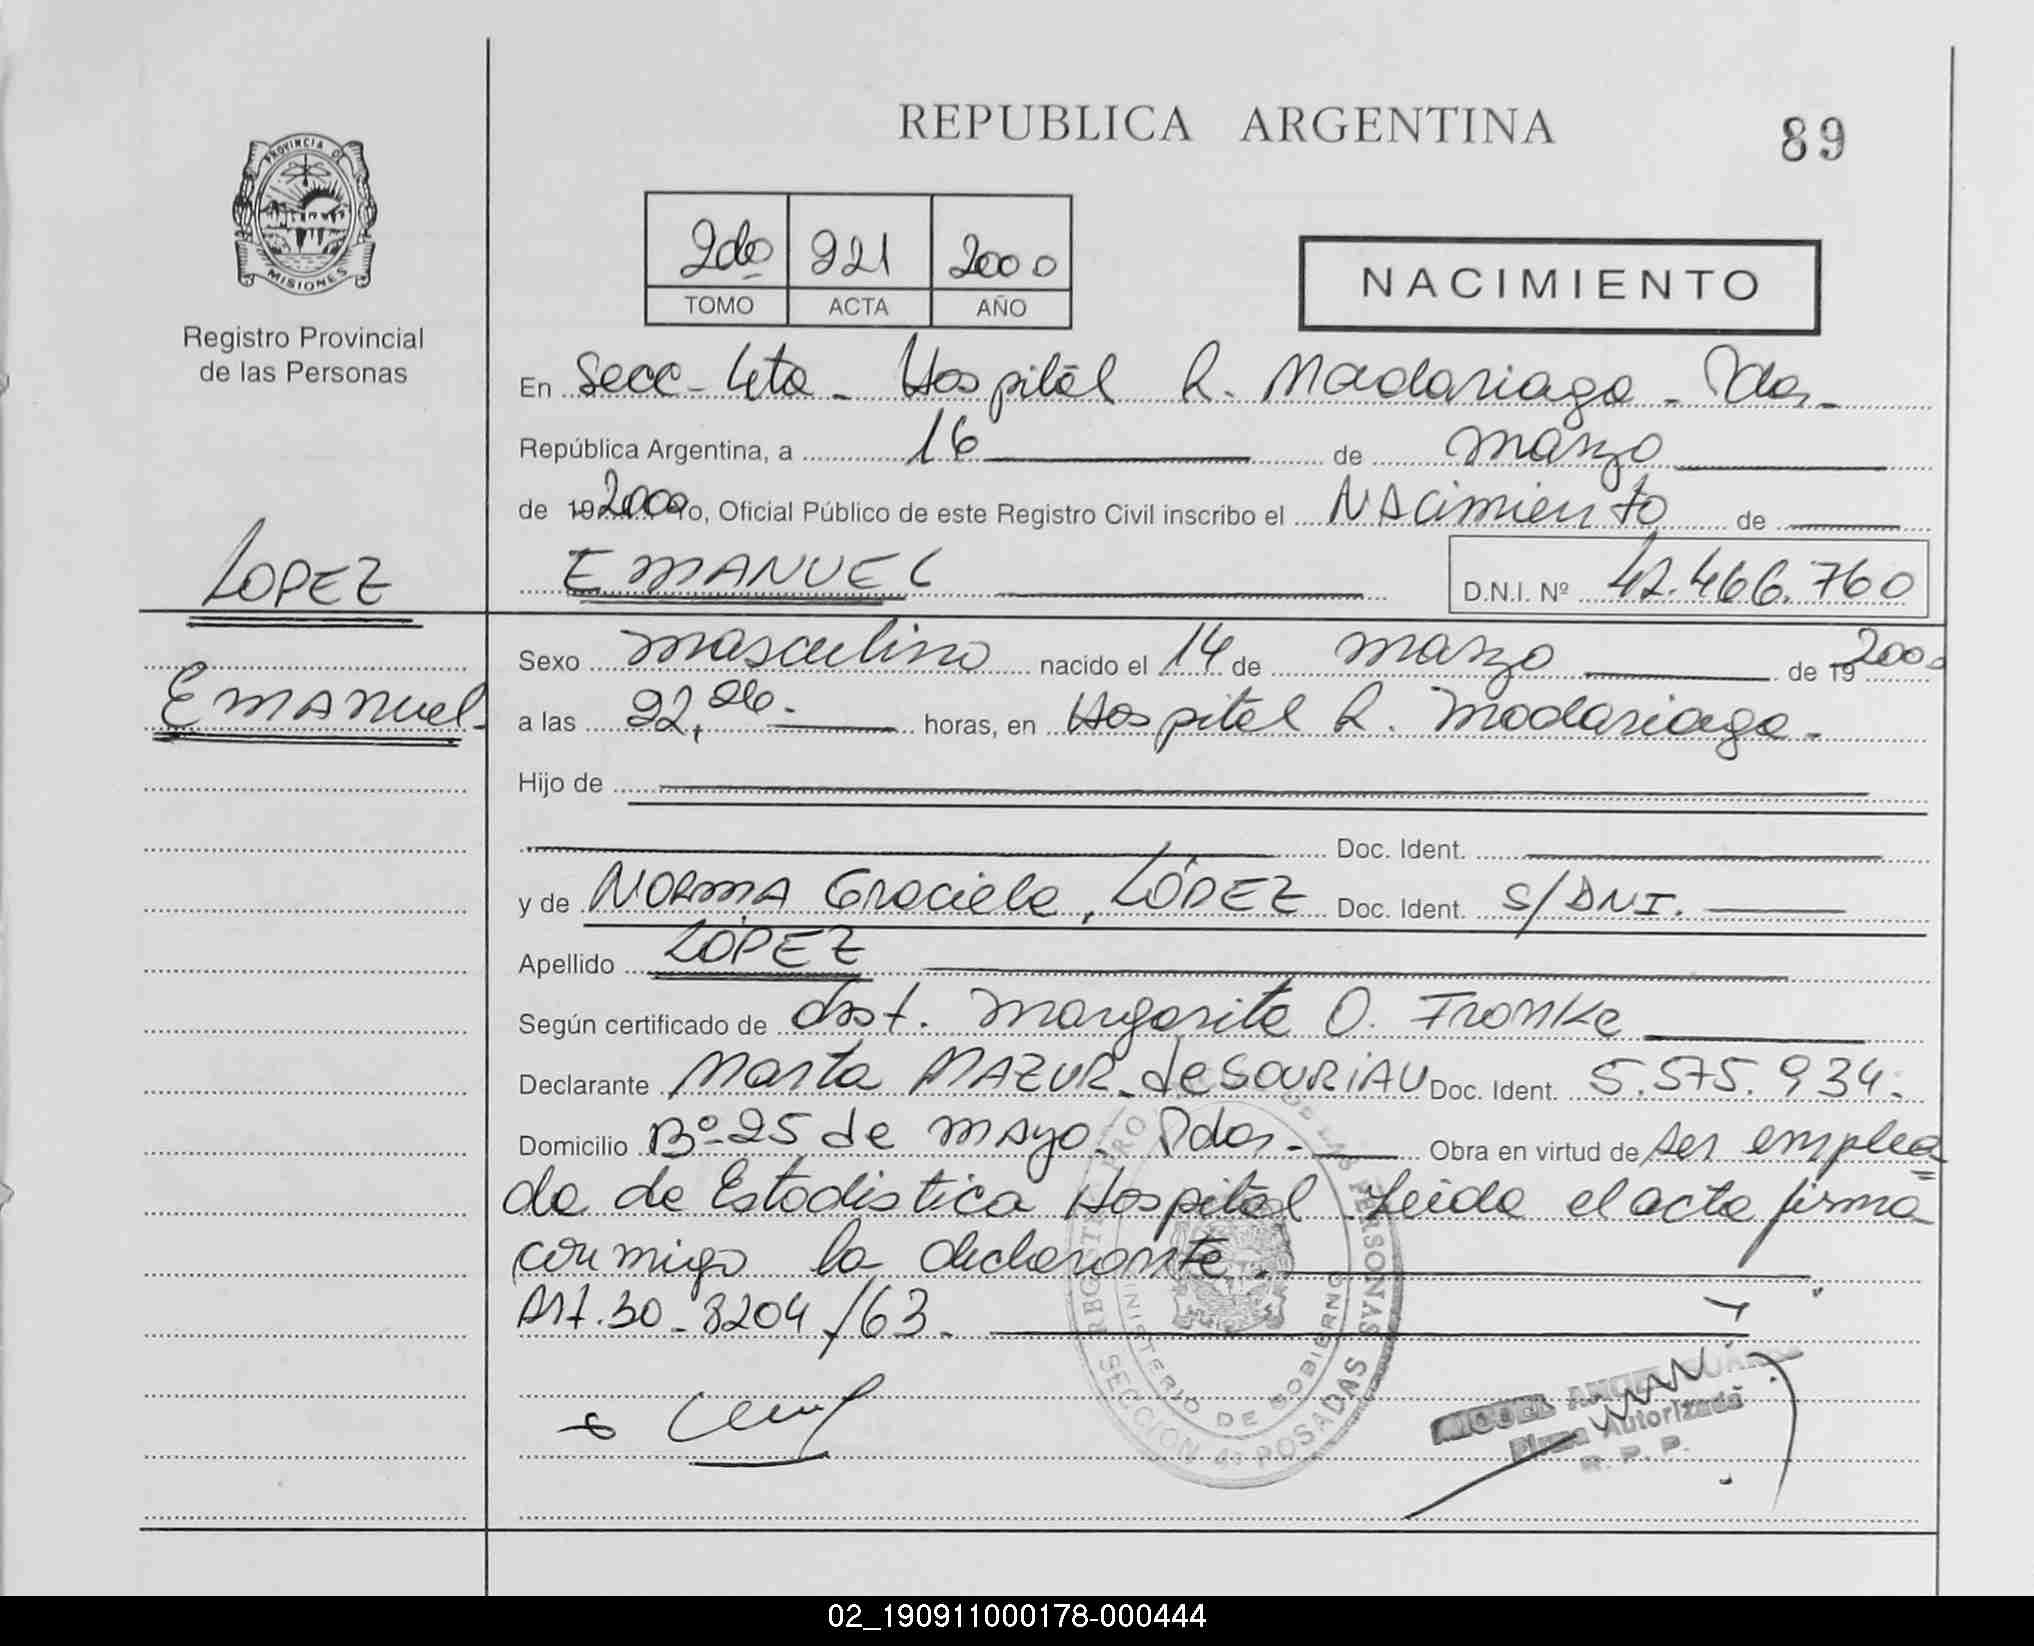 REPUBLICA ARGENTINA
89
PROVINCIA DE
MISIONES
Registro Provincial
de las Personas
2do 921 2000
TOMO ACTA AÑO
NACIMIENTO
En Secc- 4ta - Hospital R. Madariaga - Pdas -
República Argentina, a 16 de marzo
de 19 2000 Yo, Oficial Público de este Registro Civil inscribo el NAcimiento de
LOPEZ
EMANUEL
D.N.I. Nº 42.466.760
Sexo masculino nacido el 14 de marzo de 19 2000
Emanuel-
a las 22,26.- horas, en Hospital R. Madariaga -
Hijo de
Doc. Ident.
y de NORMA Graciela, LÓPEZ Doc. Ident. S/DNI.
Apellido LÓPEZ
Según certificado de Obst. Margarita O. Fromke
Declarante Marta MAZUR de SOURIAU Doc. Ident. 5.575.934.
Domicilio Bº 25 de mayo. Pdas.- Obra en virtud de ser emplea
da de Estadistica Hospital Leida el acta firma
conmigo la declarante.
Art.30-8204/63.
REGISTRO PROVINCIAL DE LAS PERSONAS
MINISTERIO DE GOBIERNO
SECCION 4ª POSADAS
MIGUEL ANGEL
Firma Autorizada
R. P. P.
02_190911000178-000444